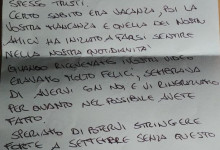 SPESSO TRISTI.
CERTO SUBITO ERA VACANZA, POI LA
VOSTRA MANCANZA E QUELLA DEI NOSTRI
AMICI HA INIZIATO A FARSI SENTIRE
NELLA NOSTRA QUOTIDIANITÀ.
QUANDO RICEVEVATE I NOSTRI VIDEO
ERAVATE MOLTO FELICI, SEMBRAVA
DI AVERVI CON NOI E VI RINGRAZIAMO
PER QUANTO NEL POSSIBILE AVETE
FATTO.
SPERIAMO DI POTERVI STRINGERE
FORTE A SETTEMBRE SENZA QUESTO